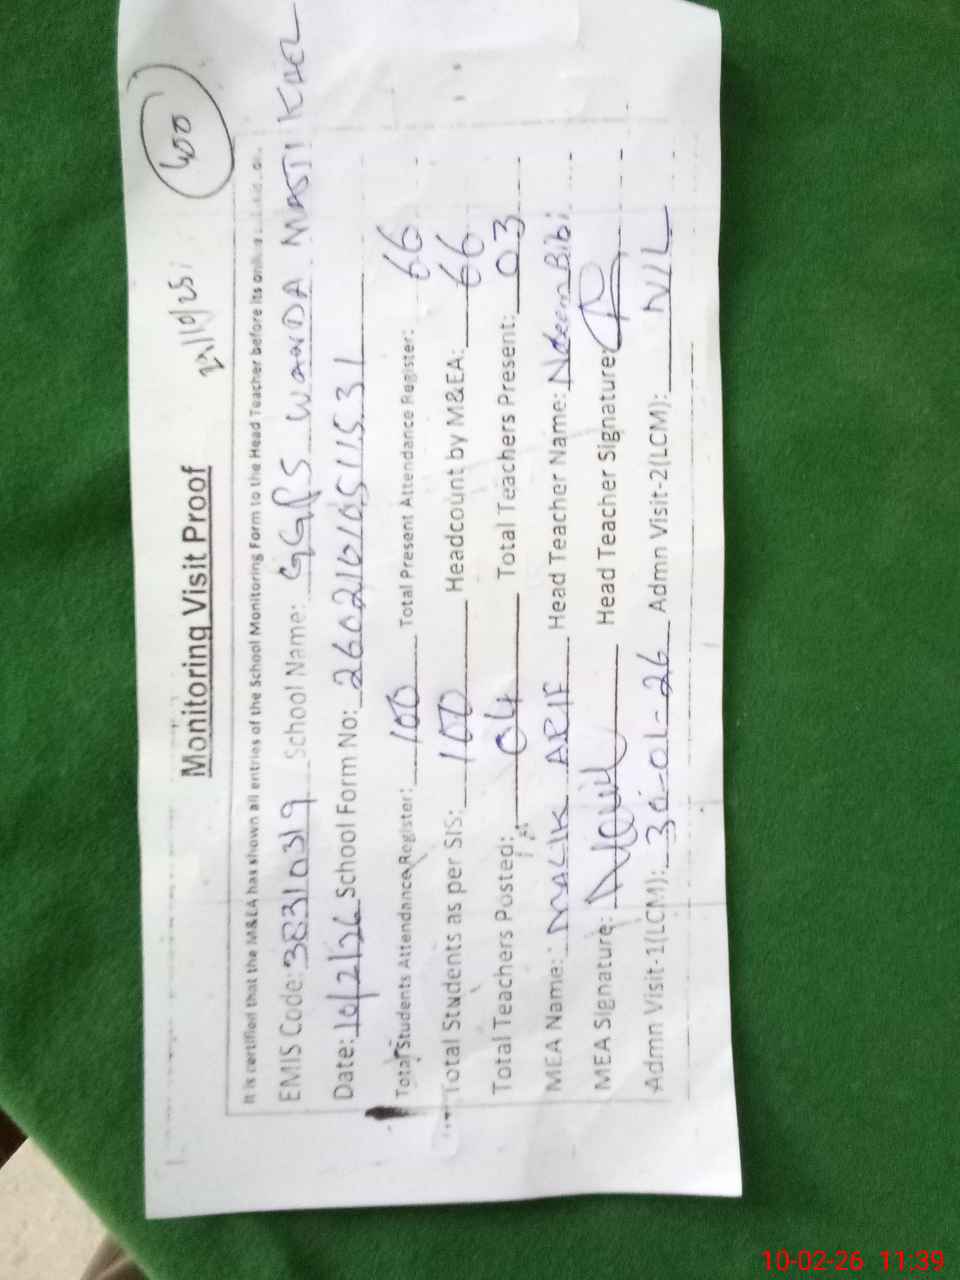 400
Monitoring Visit Proof
It is certified that the M&EA has shown all entries of the School Monitoring Form to the Head Teacher before its online
EMIS Code: 38310319 School Name: GGPS WANDA MASTI KHEL
Date: 10/2/26 School Form No: 260210105111531
Total Students Attendance Register: 100 Total Present Attendance Register: 66
Total Students as per SIS: 100 Headcount by M&EA: 66
Total Teachers Posted: 04 Total Teachers Present: 03
MEA Name: MALIK ARIF Head Teacher Name: Bibi
MEA Signature: Head Teacher Signature:
Admn Visit-1(LCM): 30-01-26 Admn Visit-2(LCM): NIL
10-02-26 11:39